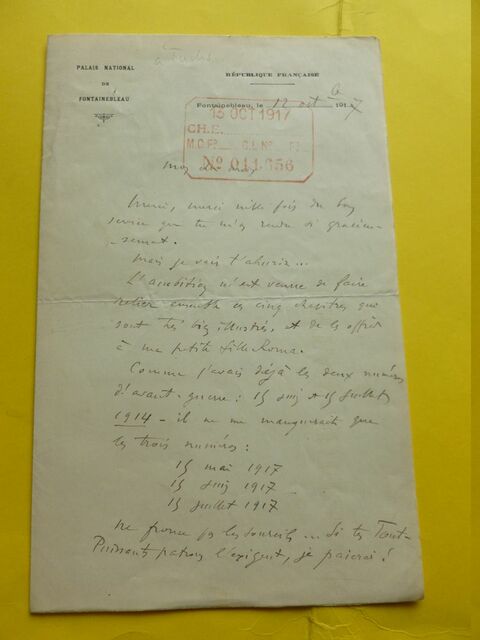 PALAIS NATIONAL
DE
FONTAINEBLEAU
RÉPUBLIQUE FRANÇAISE
Fontainebleau, le 12 oct 1917
13 OCT 1917
CH.E.
No 011356
Mon cher
Merci, merci mille fois du bon
service que tu m'as rendu si gracieu-
sement.
Mais je vais t'ahurir...
L'ambition m'est venue de faire
relier ensemble ces cinq chapitres qui
sont très bien illustrés, et de les offrir
à ma petite fille
Comme j'avais déjà les deux numéros
d'avant-guerre : 15 juin et 15 juillet
1914 - il ne me manquerait que
les trois numéros :
15 mai 1917
15 juin 1917
15 juillet 1917
ne fronce pas les sourcils... Si tes Tout-
Puissants patrons l'exigent, je paierai !